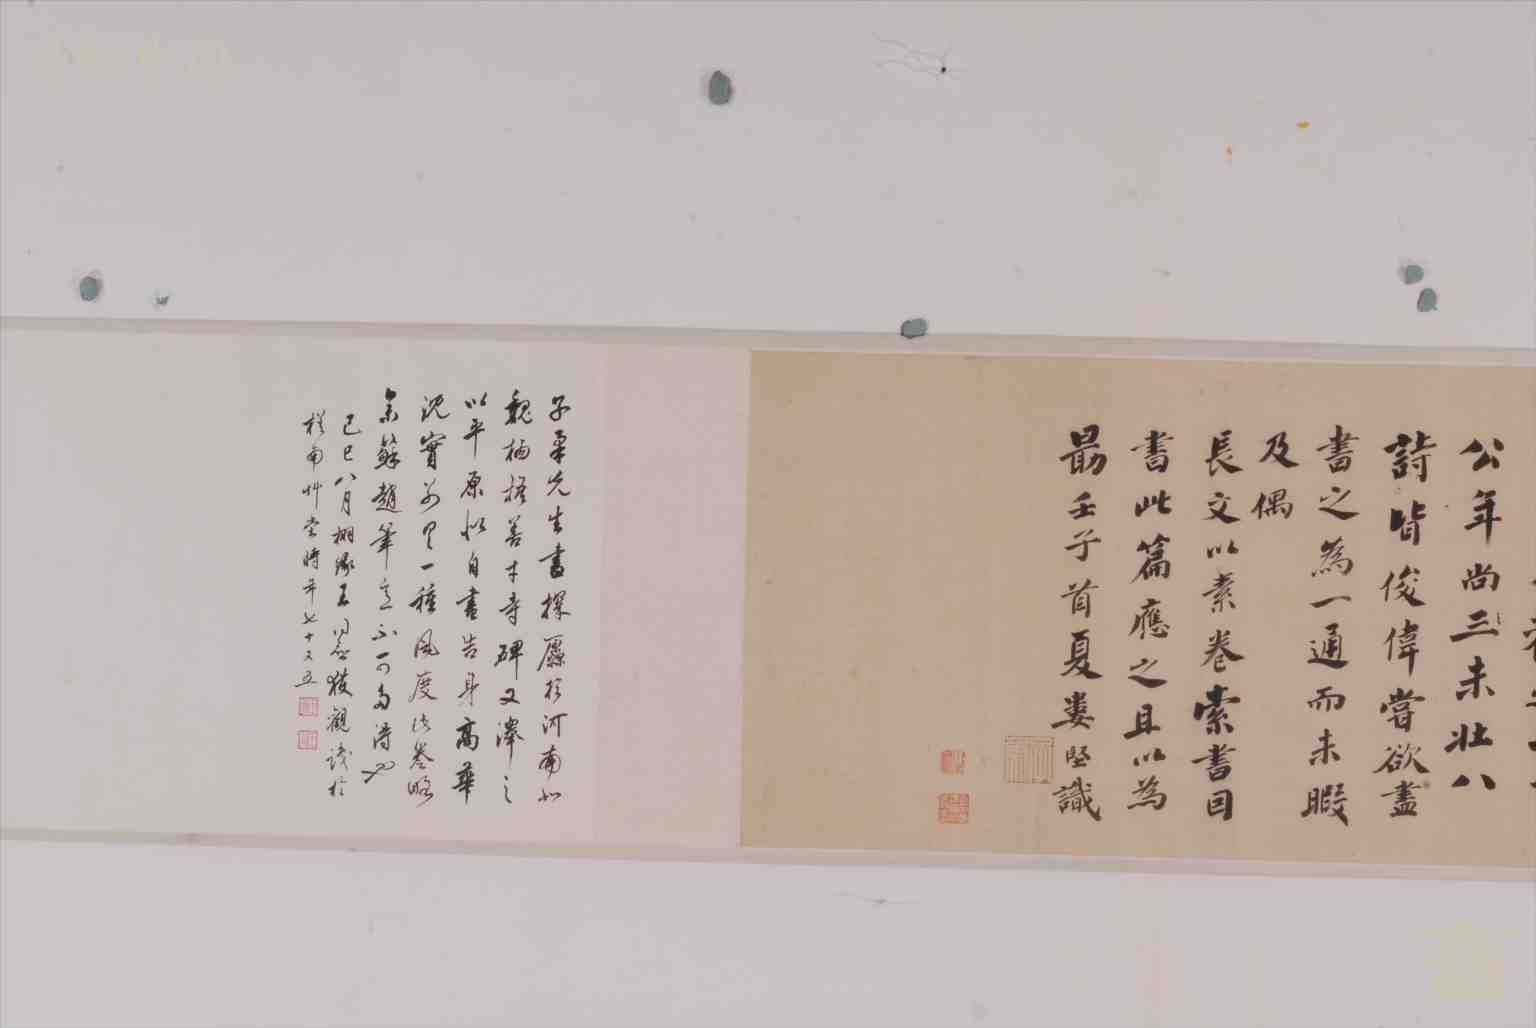 公年尚三未壯八
詩皆俊偉嘗欲盡
書之為一通而未暇
及偶
長文以素卷索書因
書此篇應之且以為
勗壬子首夏婁堅識
子柔先生書探原於河南北
魏栖梧善才寺碑又澤之
以平原於自書告身高華
沈實別具一種風度此卷略
參蘇趙筆意不可多得也
己巳八月栩緣王同愈獲觀識於
槎南艸堂時年七十又五